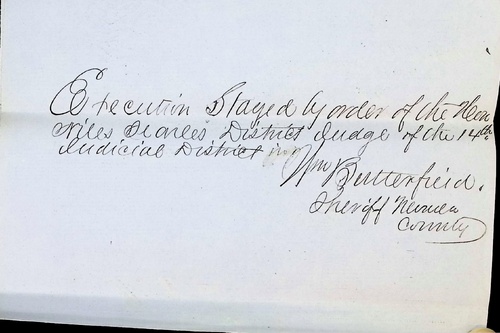 Execution Stayed by order of the Hon
Niles Searles District Judge of the 14th
Judicial District
Wm Butterfield.
Sheriff Nevada
County